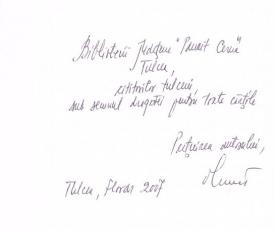 Bibliotecii Județene "Panait Cerna"
Tulcea,
cititorilor tulceni
sub semnul dragostei pentru toate cărțile
Prețuirea autorului,
Tulcea, Florar 2007